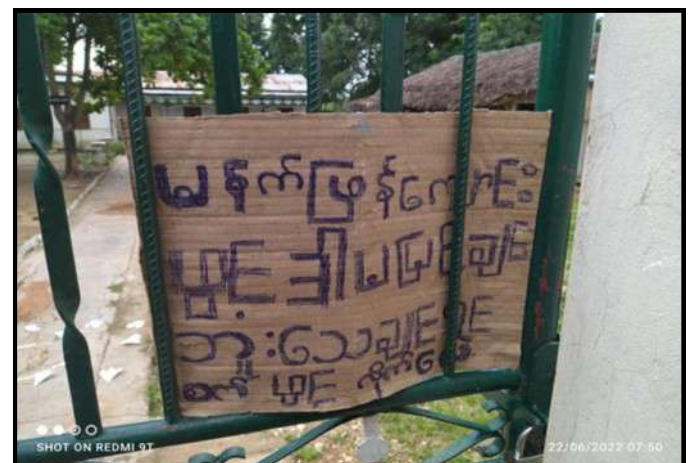 မနက်ဖြန်ကျောင်း
ဖွင့်ဒါမမြင်ချင်
ဘူးသေချင်ရင်
စက် ဖွင့် လိုက်
SHOT ON REDMI 9T
22/06/2022 07:50